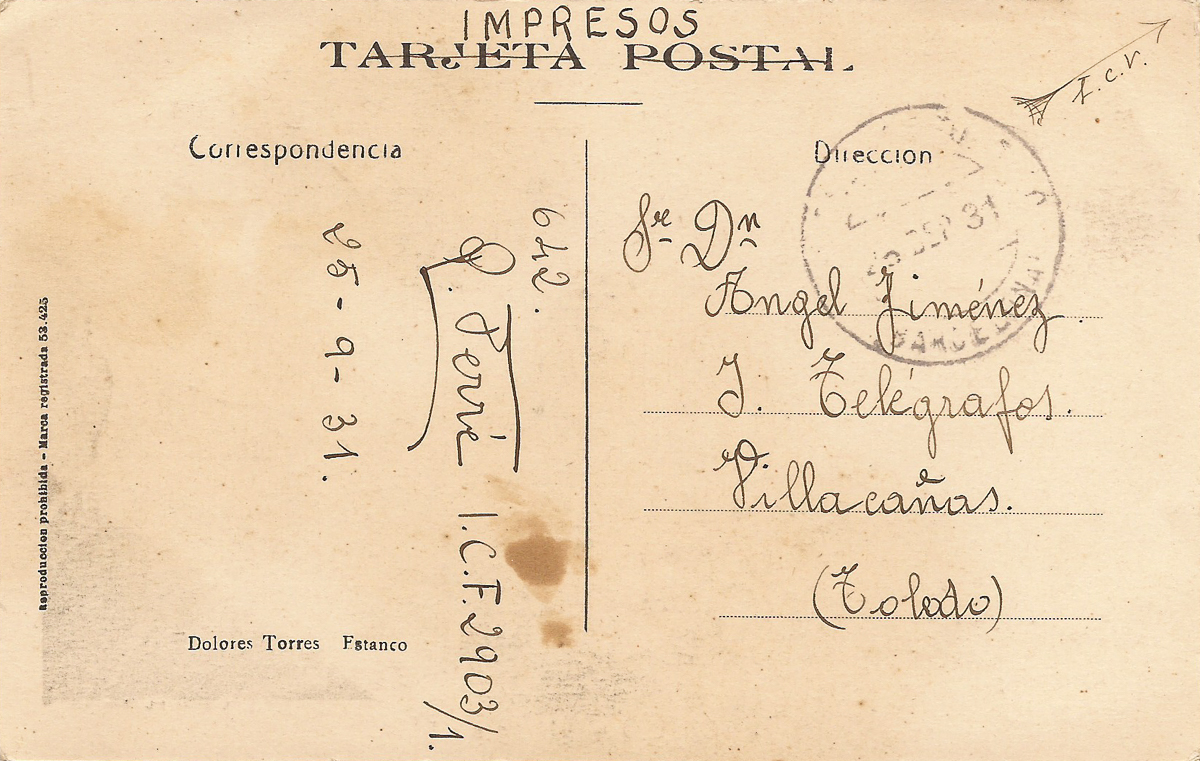 IMPRESOS
TARJETA POSTAL.
Correspondencia
Dirección
T.c.v.
25 SEP 31
BARCELONA
Sr. Dn
Angel Jiménez.
J. Telégrafos.
Villacañas.
(Toledo)
642.
Ferré I.C.F. 2903/1.
25-9-31.
Reproduccion prohibida - Marca registrada 53.425
Dolores Torres Estanco